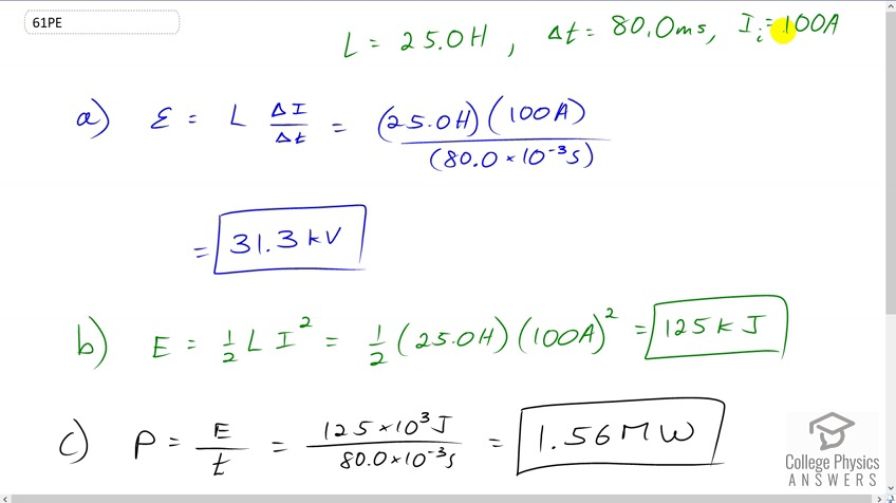 61PE
L = 25.0H , Δt = 80.0ms, Iᵢ = 100A
a) ε = L ΔI/Δt = (25.0H)(100A)/(80.0×10⁻³s)
= 31.3 kV
b) E = ½ L I² = ½ (25.0H)(100A)² = 125kJ
c) P = E/t = 125×10³J/80.0×10⁻³s = 1.56MW
College Physics
ANSWERS